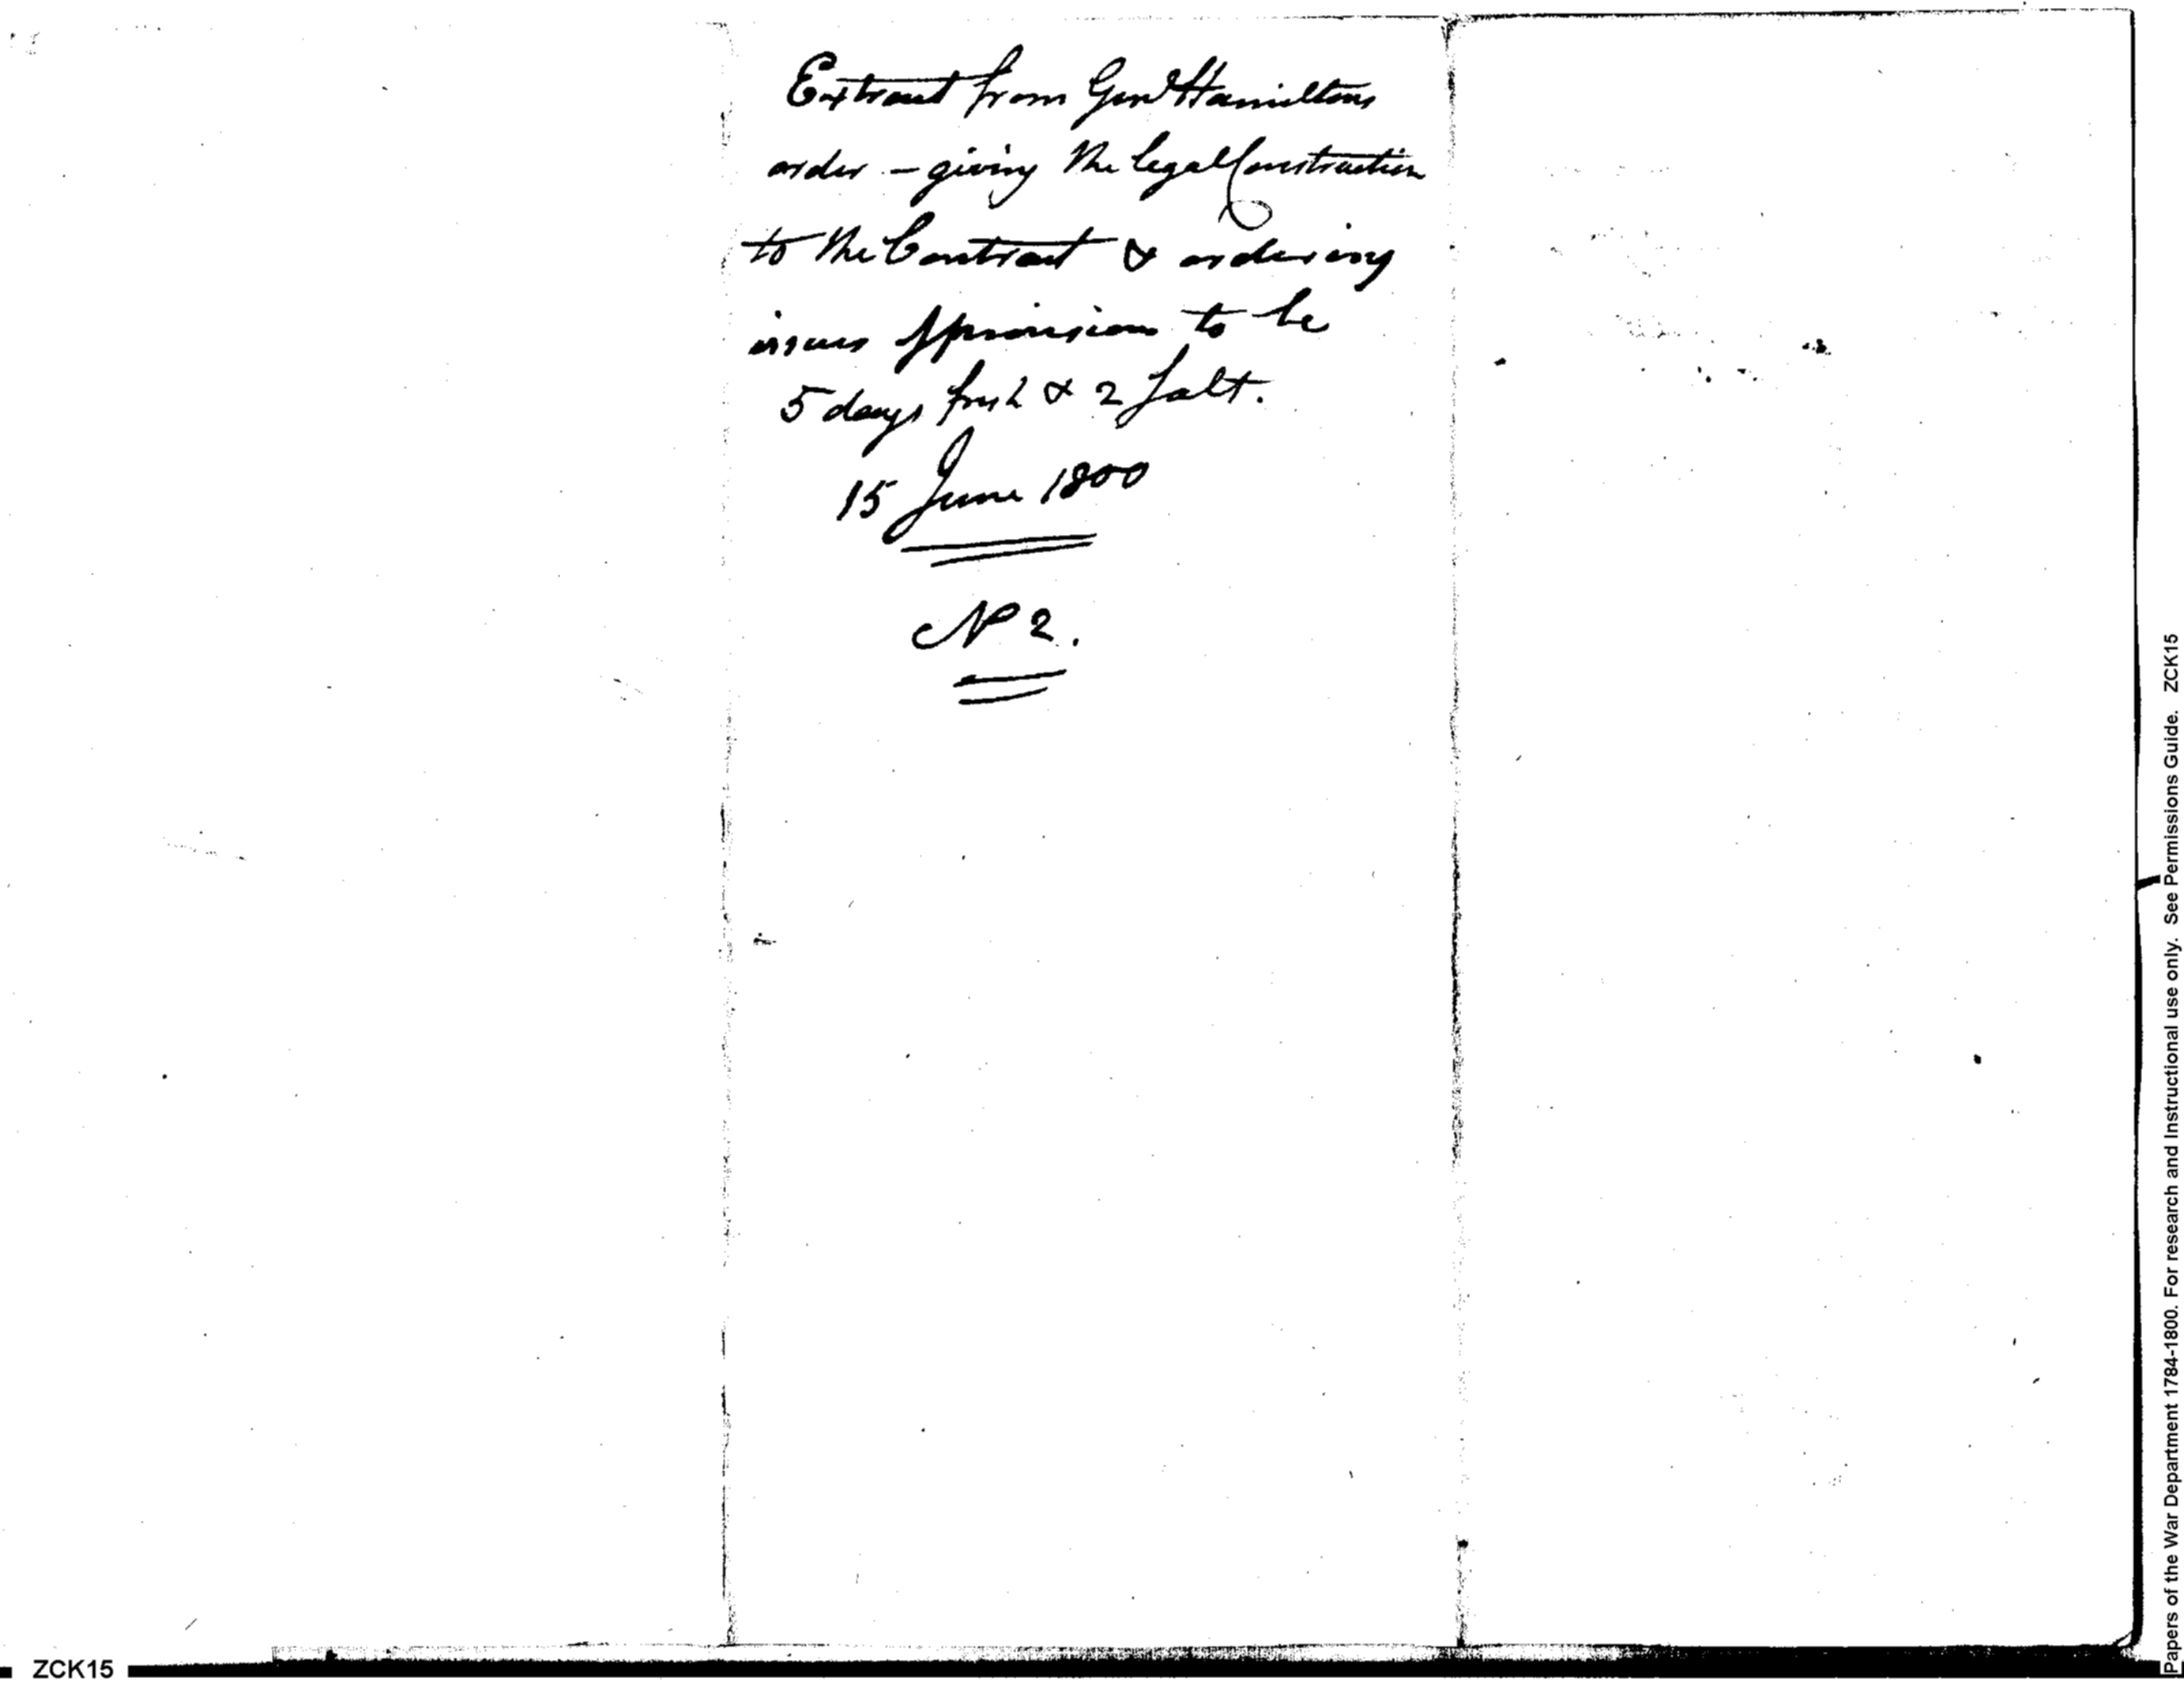 Extract from Genl Hamiltons
order - giving the legal Construction
to the Contract & ordering
issues of provision to be
5 days fresh & 2 Salt.
15 June 1800
No 2.
Papers of the War Department 1784-1800. For research and Instructional use only. See Permissions Guide. ZCK15
ZCK15